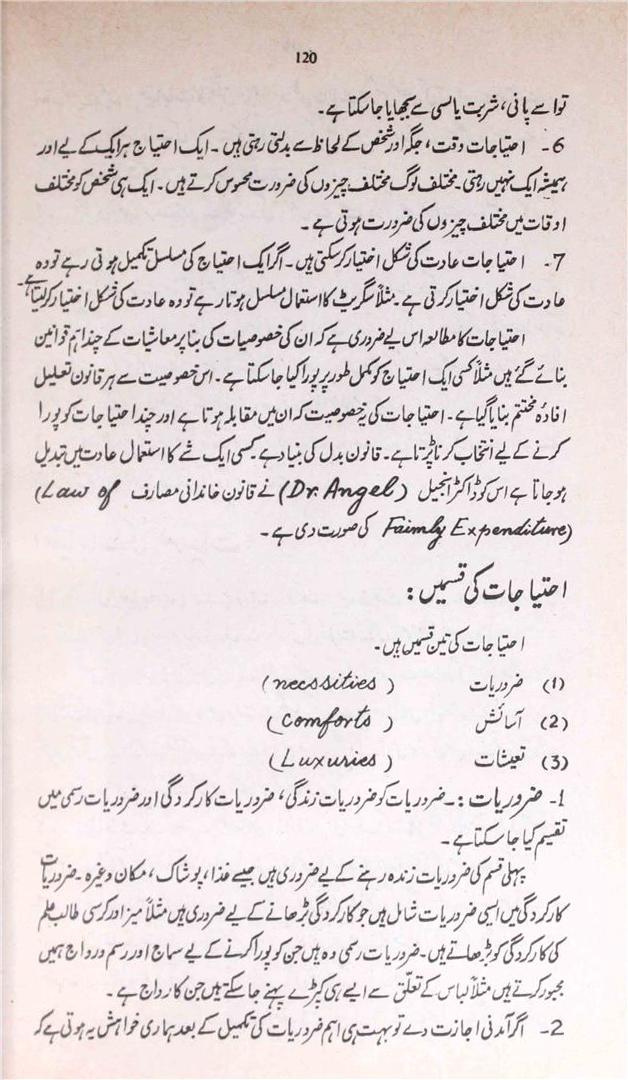 120
تو اسے پانی، شربت یا لسی سے بجھایا جا سکتا ہے۔
6- احتیاجات وقت، جگہ اور شخص کے لحاظ سے بدلتی رہتی ہیں۔ ایک احتیاج ہر ایک کے لیے اور
ہمیشہ ایک نہیں رہتی۔ مختلف لوگ مختلف چیزوں کی ضرورت محسوس کرتے ہیں۔ ایک ہی شخص کو مختلف
اوقات میں مختلف چیزوں کی ضرورت ہوتی ہے۔
7- احتیاجات عادت کی شکل اختیار کر سکتی ہیں۔ اگر ایک احتیاج کی مسلسل تکمیل ہوتی رہے تو وہ
عادت کی شکل اختیار کرتی ہے۔ مثلاً سگریٹ کا استعمال مسلسل ہوتا رہے تو وہ عادت کی شکل اختیار کر لیتا ہے۔
احتیاجات کا مطالعہ اس لیے ضروری ہے کہ ان کی خصوصیات کی بنا پر معاشیات کے چند اہم قوانین
بنائے گئے ہیں مثلاً کسی ایک احتیاج کو مکمل طور پر پورا کیا جا سکتا ہے۔ اس خصوصیت سے ہر قانون تعلیل
افادۂ مختتم بنایا گیا ہے۔ احتیاجات کی یہ خصوصیت کہ ان میں مقابلہ ہوتا ہے اور چند احتیاجات کو پورا
کرنے کے لیے انتخاب کرنا پڑتا ہے۔ قانون بدل کی بنیاد ہے۔ کسی ایک شے کا استعمال عادت میں تبدیل
ہو جاتا ہے اس کو ڈاکٹر انجیل (Dr. Angel) نے قانون خاندانی مصارف (Law of
Faimly Expenditure) کی صورت دی ہے۔
احتیاجات کی قسمیں:
احتیاجات کی تین قسمیں ہیں۔
(1) ضروریات (necssities)
(2) آسائش (Comforts)
(3) تعیشات (Luxuries)
1- ضروریات:۔ ضروریات کو ضروریات زندگی، ضروریات کارکردگی اور ضروریات رسمی میں
تقسیم کیا جا سکتا ہے۔
پہلی قسم کی ضروریات زندہ رہنے کے لیے ضروری ہیں جیسے غذا، پوشاک، مکان وغیرہ۔ ضروریات
کارکردگی میں ایسی ضروریات شامل ہیں جو کارکردگی بڑھانے کے لیے ضروری ہیں مثلاً میز اور کرسی طالب علم
کی کارکردگی کو بڑھاتے ہیں۔ ضروریات رسمی وہ ہیں جن کو پورا کرنے کے لیے سماج اور رسم و رواج ہمیں
مجبور کرتے ہیں مثلاً لباس کے تعلق سے ایسے ہی کپڑے پہنے جا سکتے ہیں جن کا رواج ہے۔
2- اگر آمدنی اجازت دے تو بہت ہی اہم ضروریات کی تکمیل کے بعد ہماری خواہش یہ ہوتی ہے کہ